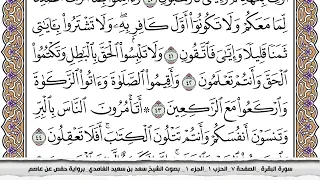 لِّمَا مَعَكُمْ وَلَا تَكُونُوٓا۟ أَوَّلَ كَافِرٍۭ بِهِۦ ۖ وَلَا تَشْتَرُوا۟ بِـَٔايَـٰتِى
ثَمَنًا قَلِيلًا وَإِيَّـٰىَ فَٱتَّقُونِ ٤١ وَلَا تَلْبِسُوا۟ ٱلْحَقَّ بِٱلْبَـٰطِلِ وَتَكْتُمُوا۟
ٱلْحَقَّ وَأَنتُمْ تَعْلَمُونَ ٤٢ وَأَقِيمُوا۟ ٱلصَّلَوٰةَ وَءَاتُوا۟ ٱلزَّكَوٰةَ
وَٱرْكَعُوا۟ مَعَ ٱلرَّٰكِعِينَ ٤٣ ۞ أَتَأْمُرُونَ ٱلنَّاسَ بِٱلْبِرِّ
وَتَنسَوْنَ أَنفُسَكُمْ وَأَنتُمْ تَتْلُونَ ٱلْكِتَـٰبَ ۚ أَفَلَا تَعْقِلُونَ ٤٤
سورة البقرة _ الصفحة ٧ _ الحزب ١ _ الجزء ١ _ بصوت الشيخ سعد بن سعيد الغامدي _ برواية حفص عن عاصم